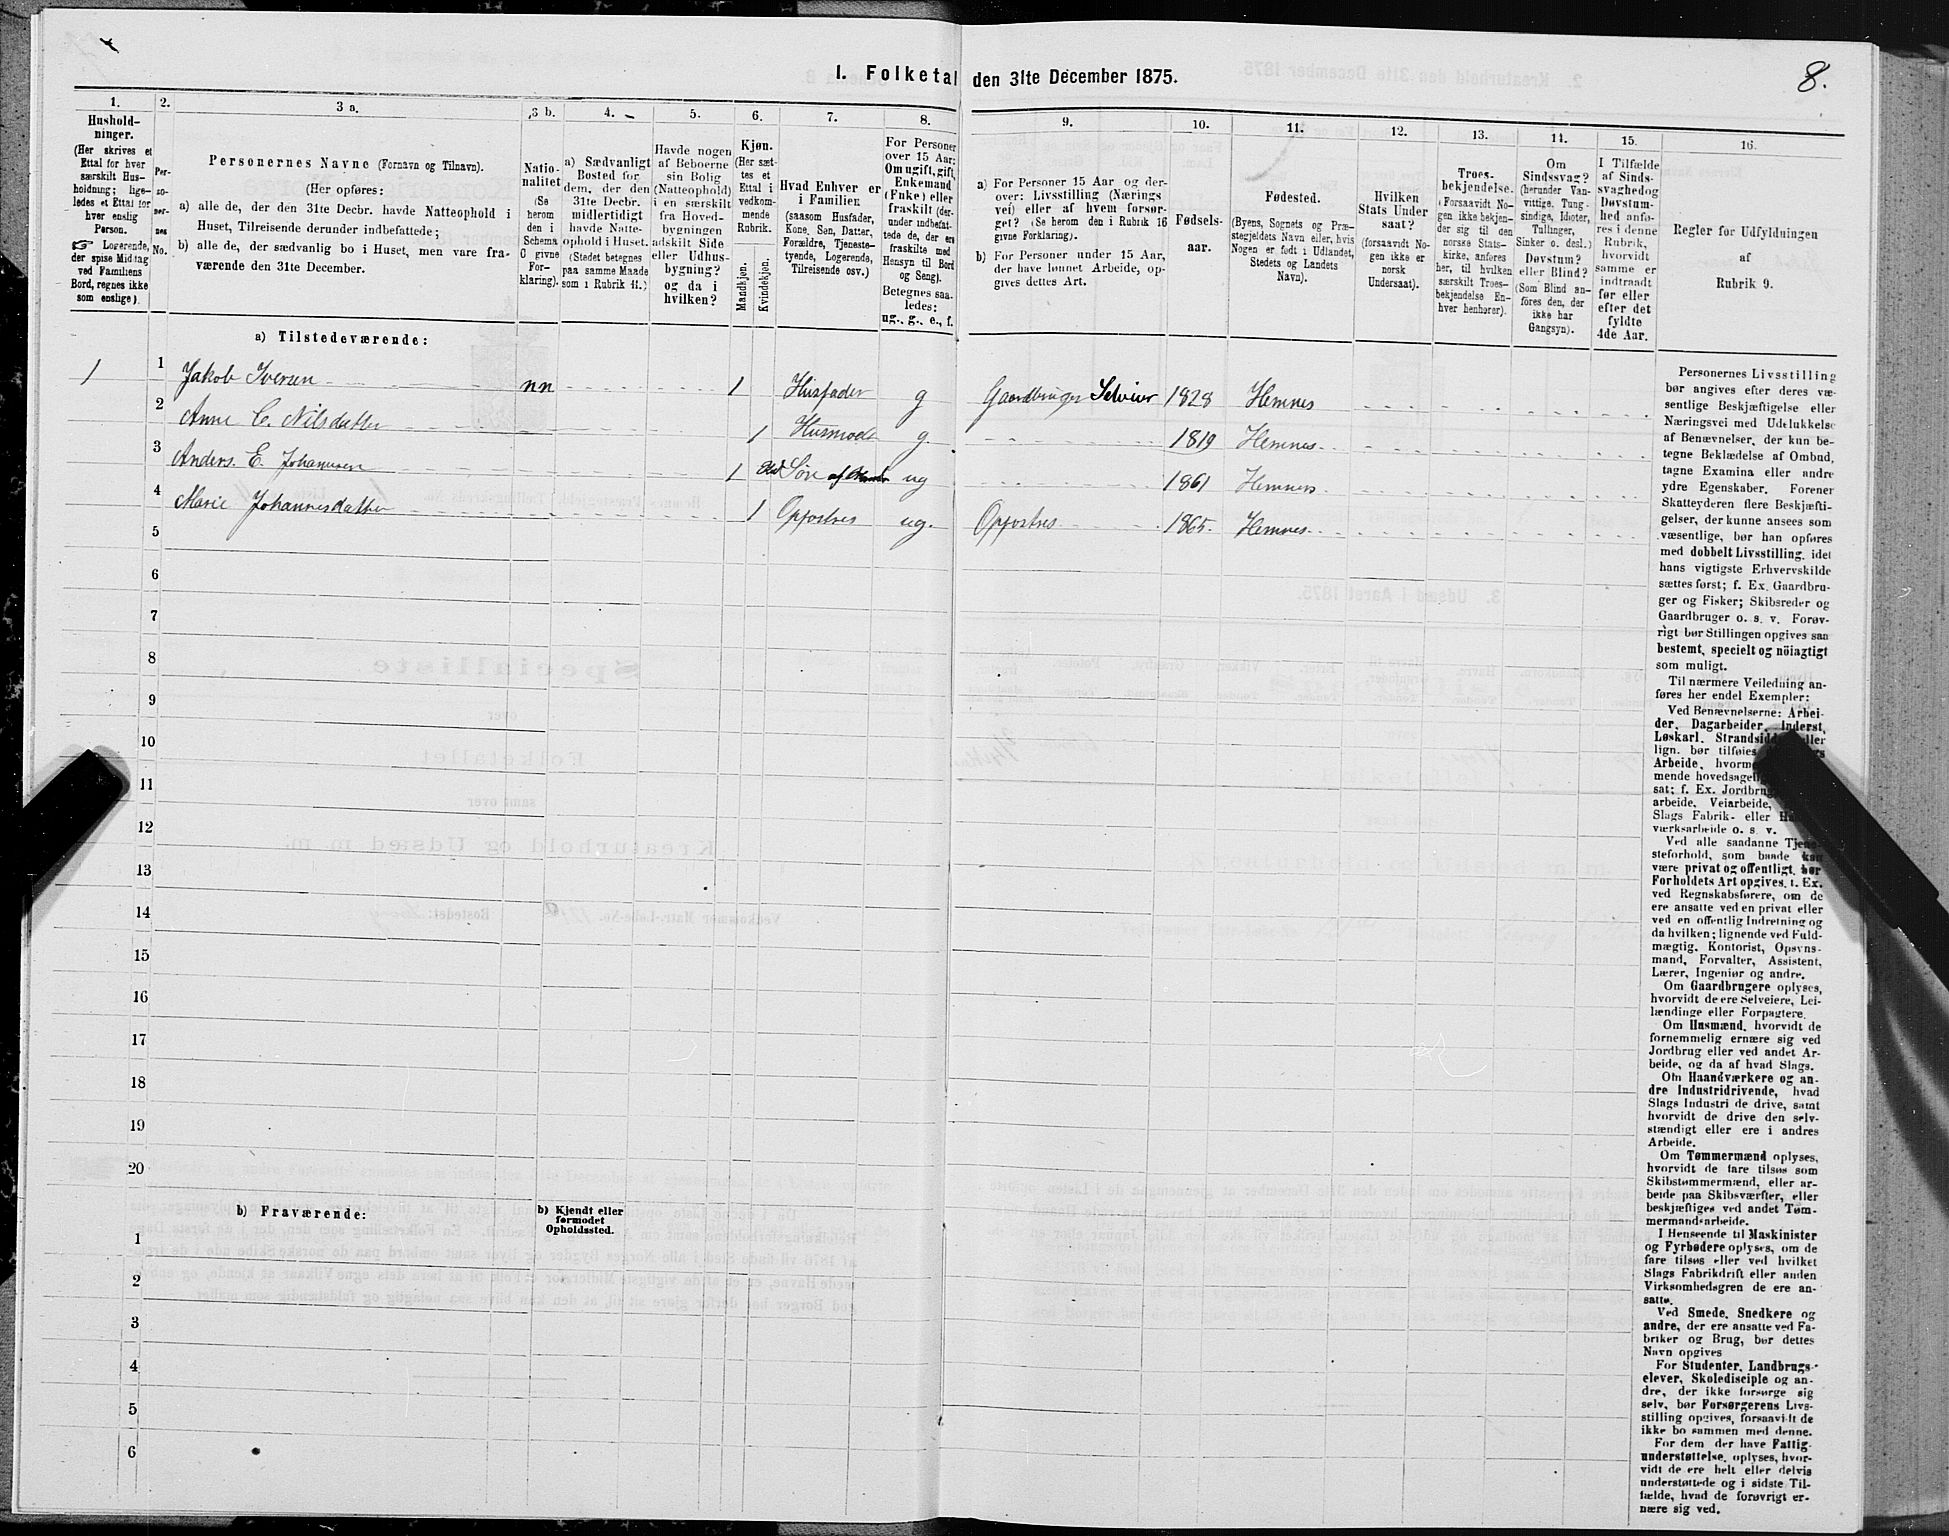 8.
I. Folketal den 31te December 1875.
1.
Hushold-
ninger.
(Her skrives et
Ettal for hver
særskilt Hus-
holdning; lige-
ledes et Ettal for
hver enslig
Person.
☞ Logerende,
der spise Middag
ved Familiens
Bord, regnes ikke
som enslige).
2.
Per-
so-
ner-
nes
No.
3 a.
Personernes Navne (Fornavn og Tilnavn).
(Her opføres:
a) alle de, der den 31te Decbr. havde Natteophold i
Huset, Tilreisende derunder indbefattede;
b) alle de, der sædvanlig bo i Huset, men vare fra-
værende den 31te December.
3 b.
Natio-
nalitet
(Se
herom
den i
Schema
C givne
For-
klaring).
4.
a) Sædvanligt
Bosted for
dem, der den
31te Decbr.
midlertidigt
havde Natte-
ophold i Huset.
(Stedet betegnes
paa samme Maade
som i Rubrik 11.)
5.
Havde nogen
af Beboerne
sin Bolig
(Natteophold)
i en særskilt
fra Hoved-
bygningen
adskilt Side
eller Udhus-
bygning?
og da i
hvilken?
6.
Kjøn.
(Her sæt-
tes et
Ettal i
vedkom-
mende
Rubrik.
Mandkjøn.
Kvindekjøn.
7.
Hvad Enhver er
i Familien
(saasom Husfader,
Kone, Søn, Datter,
Forældre, Tjeneste-
tyende, Logerende,
Tilreisende osv.)
8.
For Personer
over 15 Aar:
Om ugift, gift,
Enkemand
(Enke) eller
fraskilt (der-
under indbefat-
tede de, der ere
fraskilte med
Hensyn til Bord
og Seng).
Betegnes saa-
ledes:
ug., g., e., f.
9.
a) For Personer 15 Aar og der-
over: Livsstilling (Nærings
vei) eller af hvem forsør-
get? (Se herom den i Rubrik 16
givne Forklaring).
b) For Personer under 15 Aar,
der have lønnet Arbeide, op-
gives dettes Art.
10.
Fødsels-
aar.
11.
Fødested.
(Byens, Sognets og Præ-
stegjeldets Navn eller, hvis
Nogen er født i Udlandet,
Stedets og Landets
Navn).
12.
Hvilken
Stats Under
saat?
(forsaavidt No-
gen ikke er
norsk
Undersaat).
13.
Troes-
bekjendelse.
(Forsaavidt No-
gen ikke bekjen-
der sig til den
norske Stats-
kirke, anføres
her, til hvilken
særskilt Troes-
bekjendelse En-
hver henhører).
14.
Om
Sindssvag?
(herunder Van-
vittige, Tung-
sindige, Idioter,
Tullinger,
Sinker o. desl.)
Døvstum?
eller Blind?
(Som Blind an-
føres den, der
ikke har
Gangsyn).
15.
I Tilfælde
af Sinds-
svaghed og
Døvstum-
hed anfø-
res i denne
Rubrik,
hvorvidt
samme er
indtraadt
før eller
efter det
fyldte
4de Aar.
16.
Regler for Udfyldningen
af
Rubrik 9.
a) Tilstedeværende:
1 1 Jakob Iversen nn 1 Husfader g Gaardbruger Selveier 1828 Hemnes
2 Anne C. Nilsdatter 1 Husmoder g 1819 Hemnes
3 Anders. E. Johannesen 1 Søn ug 1861 Hemnes
4 Marie Johannesdatter 1 Opfostres ug. Opfostres 1865. Hemnes
5
6
7
8
9
10
11
12
13
14
15
16
17
18
19
20
b) Fraværende:
b) Kjendt eller
formodet
Opholdssted.
1
2
3
4
5
6
Personernes Livsstilling
bør angives efter deres væ-
sentlige Beskjæftigelse eller
Næringsvei med Udelukkelse
af Benævnelser, der kun be-
tegne Beklædelse af Ombud,
tagne Examina eller andre
ydre Egenskaber. Forener
Skatteyderen flere Beskjæfti-
gelser, der kunne ansees som
væsentlige, bør han opføres
med dobbelt Livsstilling, idet
hans vigtigste Erhvervskilde
sættes først; f. Ex. Gaardbru-
ger og Fisker; Skibsreder og
Gaardbruger o. s. v. Forøv-
rigt bør Stillingen opgives saa
bestemt, specielt og nöiagtigt
som muligt.
Til nærmere Veiledning an-
føres her endel Exempler:
Ved Benævnelserne: Arbei-
der, Dagarbeider, Inderst,
Løskarl, Strandsidder eller
lign. bør tilføies
Arbeide, hvorm
mende hovedsagel
sat; f. Ex. Jordbrug
arbeide, Veiarbeide,
Slags Fabrik- eller
værksarbeide o. s. v.
Ved alle saadanne Tjene-
steforhold, som baade kan
være privat og offentligt, bør
Forholdets Art opgives, t. Ex.
ved Regnskabsførere, om de
ere ansatte ved en privat eller
ved en offentlig Indretning og
da hvilken; lignende ved Fuld-
mægtig, Kontorist, Opsyns-
mand, Forvalter, Assistent,
Lærer, Ingeniør og andre.
Om Gaardbrugere oplyses,
hvorvidt de ere Selveiere, Lei-
lændinge eller Forpagtere.
Om Husmænd, hvorvidt de
fornemmelig ernære sig ved
Jordbrug eller ved andet Ar-
beide, og da af hvad Slags.
Om Haandværkere og an-
dre Industridrivende, hvad
Slags Industri de drive, samt
hvorvidt de drive den selv-
stændigt eller ere i andres
Arbeide.
Om Tømmermænd oplyses,
hvorvidt de fare tilsøs som
Skibstømmermænd, eller ar-
beide paa Skibsværfter, eller
beskjæftiges ved andet Tøm-
mermandsarbeide.
I Henseende til Maskinister
og Fyrbødere oplyses, om de
fare tilsøs eller ved hvilket
Slags Fabrikdrift eller anden
Virksomhedsgren de ere an-
satte.
Ved Smede, Snedkere og
andre, der ere ansatte ved Fa-
briker og Brug, bør dettes
Navn opgives
For Studenter, Landbrugs-
elever, Skoledisciple og an-
dre, der ikke forsørge sig
selv, bør Forsørgerens Livs-
stilling opgives, forsaavidt de
ikke bo sammen med denne.
For dem der have Fattig-
understøttelse, oplyses, hvor-
vidt de ere helt eller delvis
understøttede og i sidste Til-
fælde, hvad de forøvrigt er-
nære sig ved.